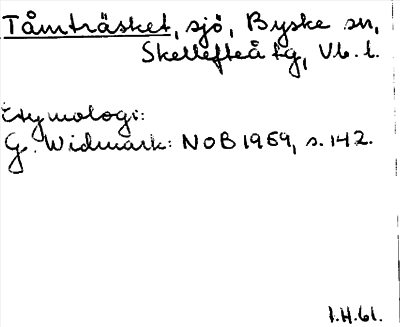 Tåmträsket, sjö, Byske sn,
Skellefteå tg, Vb. l.
Etymologi:
G. Widmark: NOB 1959, s. 142.
1.H.61.